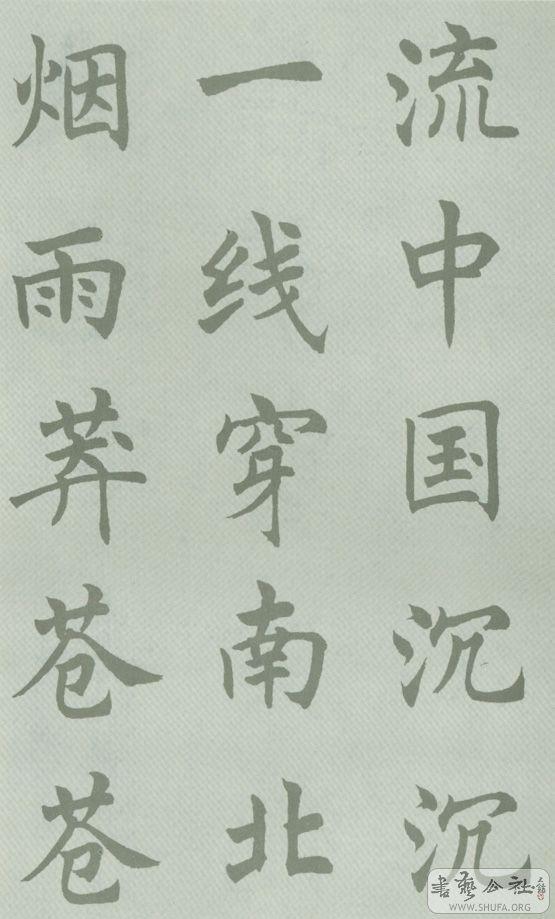 流中国沉沉
一线穿南北
烟雨莽苍苍
書藝公社
WWW.SHUFA.ORG